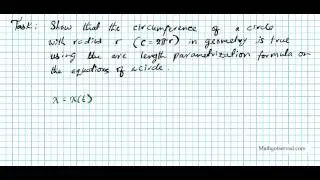 Task: Show that the circumference of a circle
with radius r (C = 2πr) in geometry is true
using the arc length parametrization formula on
the equations of a circle.
x = x(t)
Mathgotserved.com